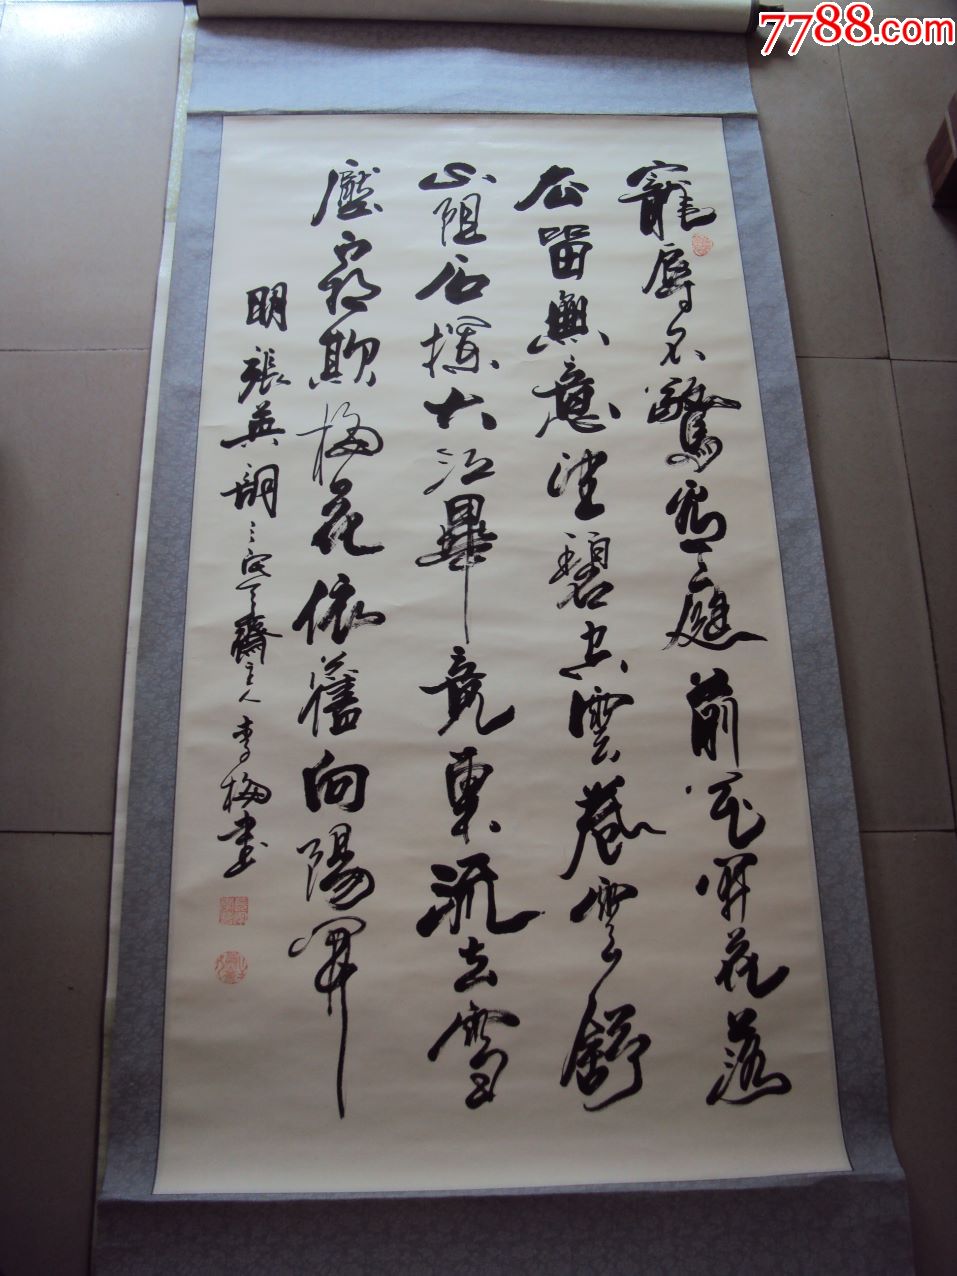 7788.com
寵辱不驚看庭前花開花落
去留無意望碧空雲卷雲舒
山阻石攔大江畢竟東流去雪
壓霜欺梅花依舊向陽開
明張英詞齋主人李梅書